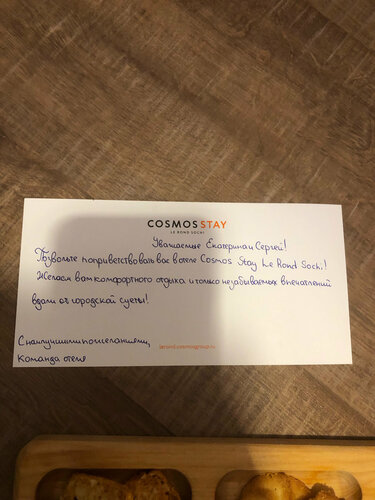 COSMOS STAY
LE ROND SOCHI
Уважаемые Екатерина и Сергей!
Позвольте поприветствовать вас в отеле Cosmos Stay Le Rond Sochi!
Желаем вам комфортного отдыха и только незабываемых впечатлений
вдали от городской суеты!
С наилучшими пожеланиями,
Команда отеля
lerond.cosmosgroup.ru